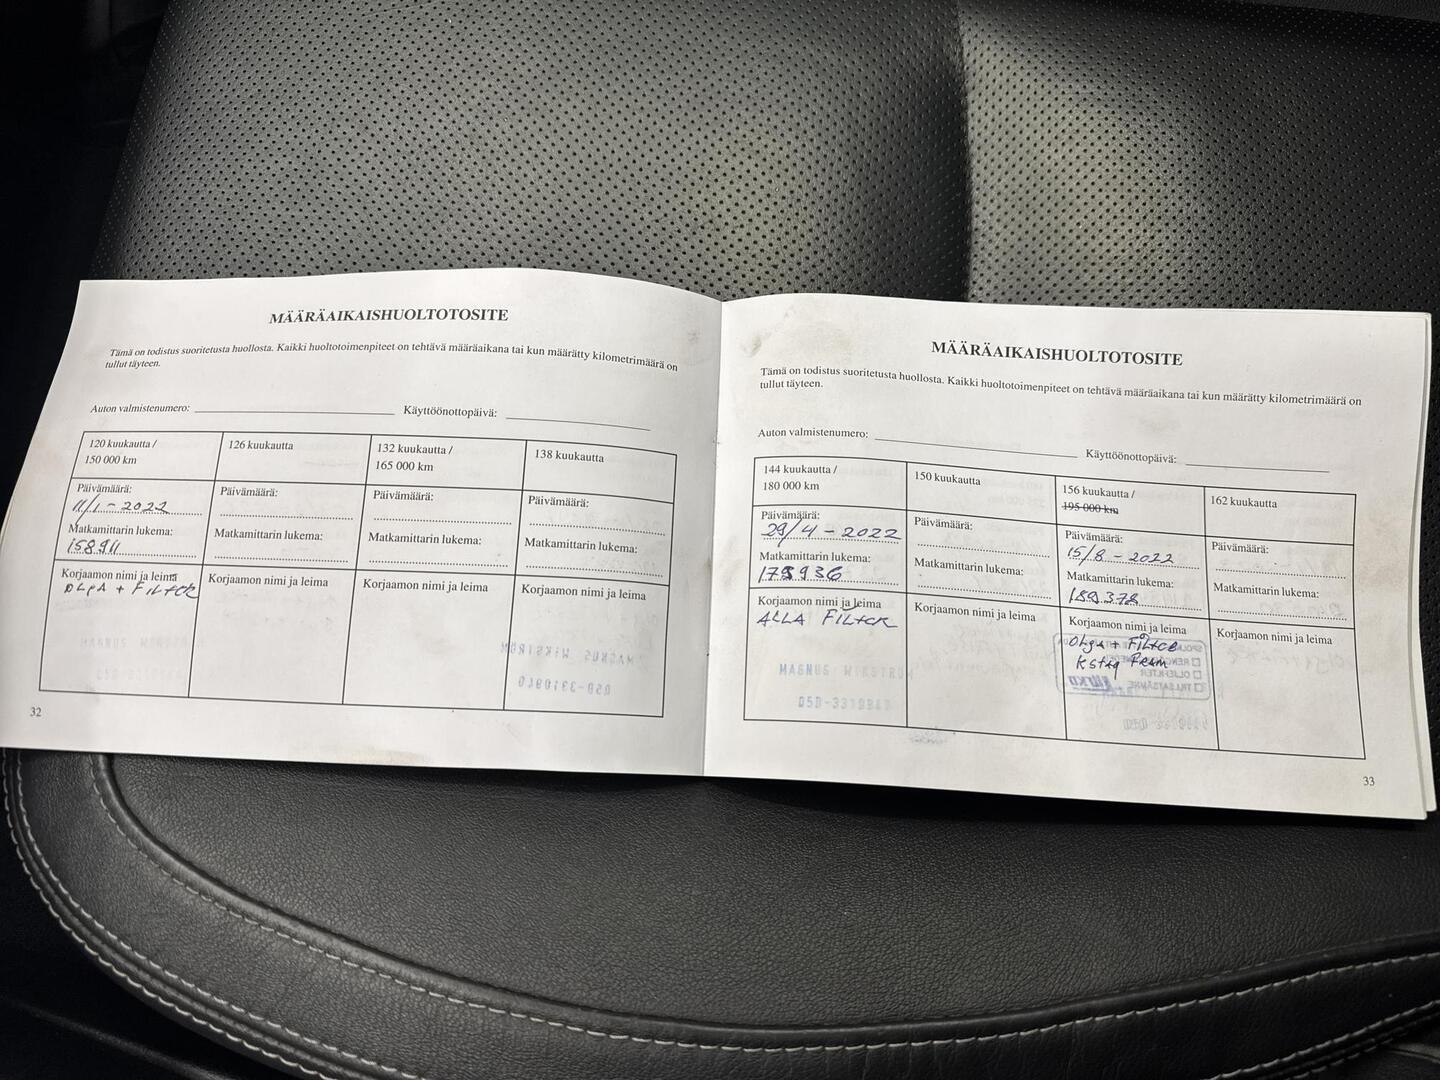 MÄÄRÄAIKAISHUOLTOTOSITE
Tämä on todistus suoritetusta huollosta. Kaikki huoltotoimenpiteet on tehtävä määräaikana tai kun määrätty kilometrimäärä on
tullut täyteen.
Auton valmistenumero:
Käyttöönottopäivä:
120 kuukautta /
150 000 km
126 kuukautta
132 kuukautta /
165 000 km
138 kuukautta
Päivämäärä:
11/1-2022
Päivämäärä:
Päivämäärä:
Päivämäärä:
Matkamittarin lukema:
158911
Matkamittarin lukema:
Matkamittarin lukema:
Matkamittarin lukema:
Korjaamon nimi ja leima
OLJA + FILTER
Korjaamon nimi ja leima
Korjaamon nimi ja leima
Korjaamon nimi ja leima
32
MÄÄRÄAIKAISHUOLTOTOSITE
Tämä on todistus suoritetusta huollosta. Kaikki huoltotoimenpiteet on tehtävä määräaikana tai kun määrätty kilometrimäärä on
tullut täyteen.
Auton valmistenumero:
Käyttöönottopäivä:
144 kuukautta /
180 000 km
150 kuukautta
156 kuukautta /
195 000 km
162 kuukautta
Päivämäärä:
29/4-2022
Päivämäärä:
Päivämäärä:
15/8-2022
Päivämäärä:
Matkamittarin lukema:
Matkamittarin lukema:
Matkamittarin lukema:
189378
Matkamittarin lukema:
Korjaamon nimi ja leima
ALLA FILTER
MAGNUS WIKSTRÖM
Korjaamon nimi ja leima
Korjaamon nimi ja leima
OLJA + FILTER
Korjaamon nimi ja leima
33